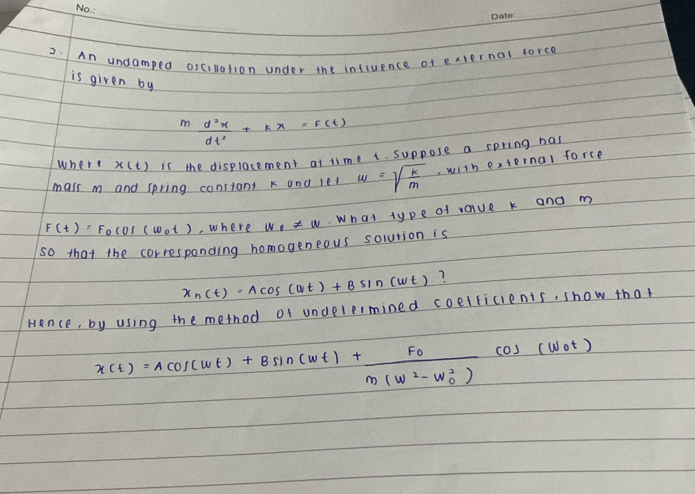 No.:
Date:
2. An undamped oscillation under the influence of external force
is given by
m d²x/dt² + kx = F(t)
where x(t) is the displacement at time t. Suppose a spring has
mass m and spring constant k and let w = √(k/m), with external force
F(t) = F₀cos(w₀t), where w₀ ≠ w. What type of value k and m
so that the corresponding homogeneous solution is
xₕ(t) = A cos(wt) + B sin(wt)?
Hence, by using the method of undetermined coefficients, show that
x(t) = A cos(wt) + B sin(wt) + F₀/(m(w² - w₀²)) cos(w₀t)